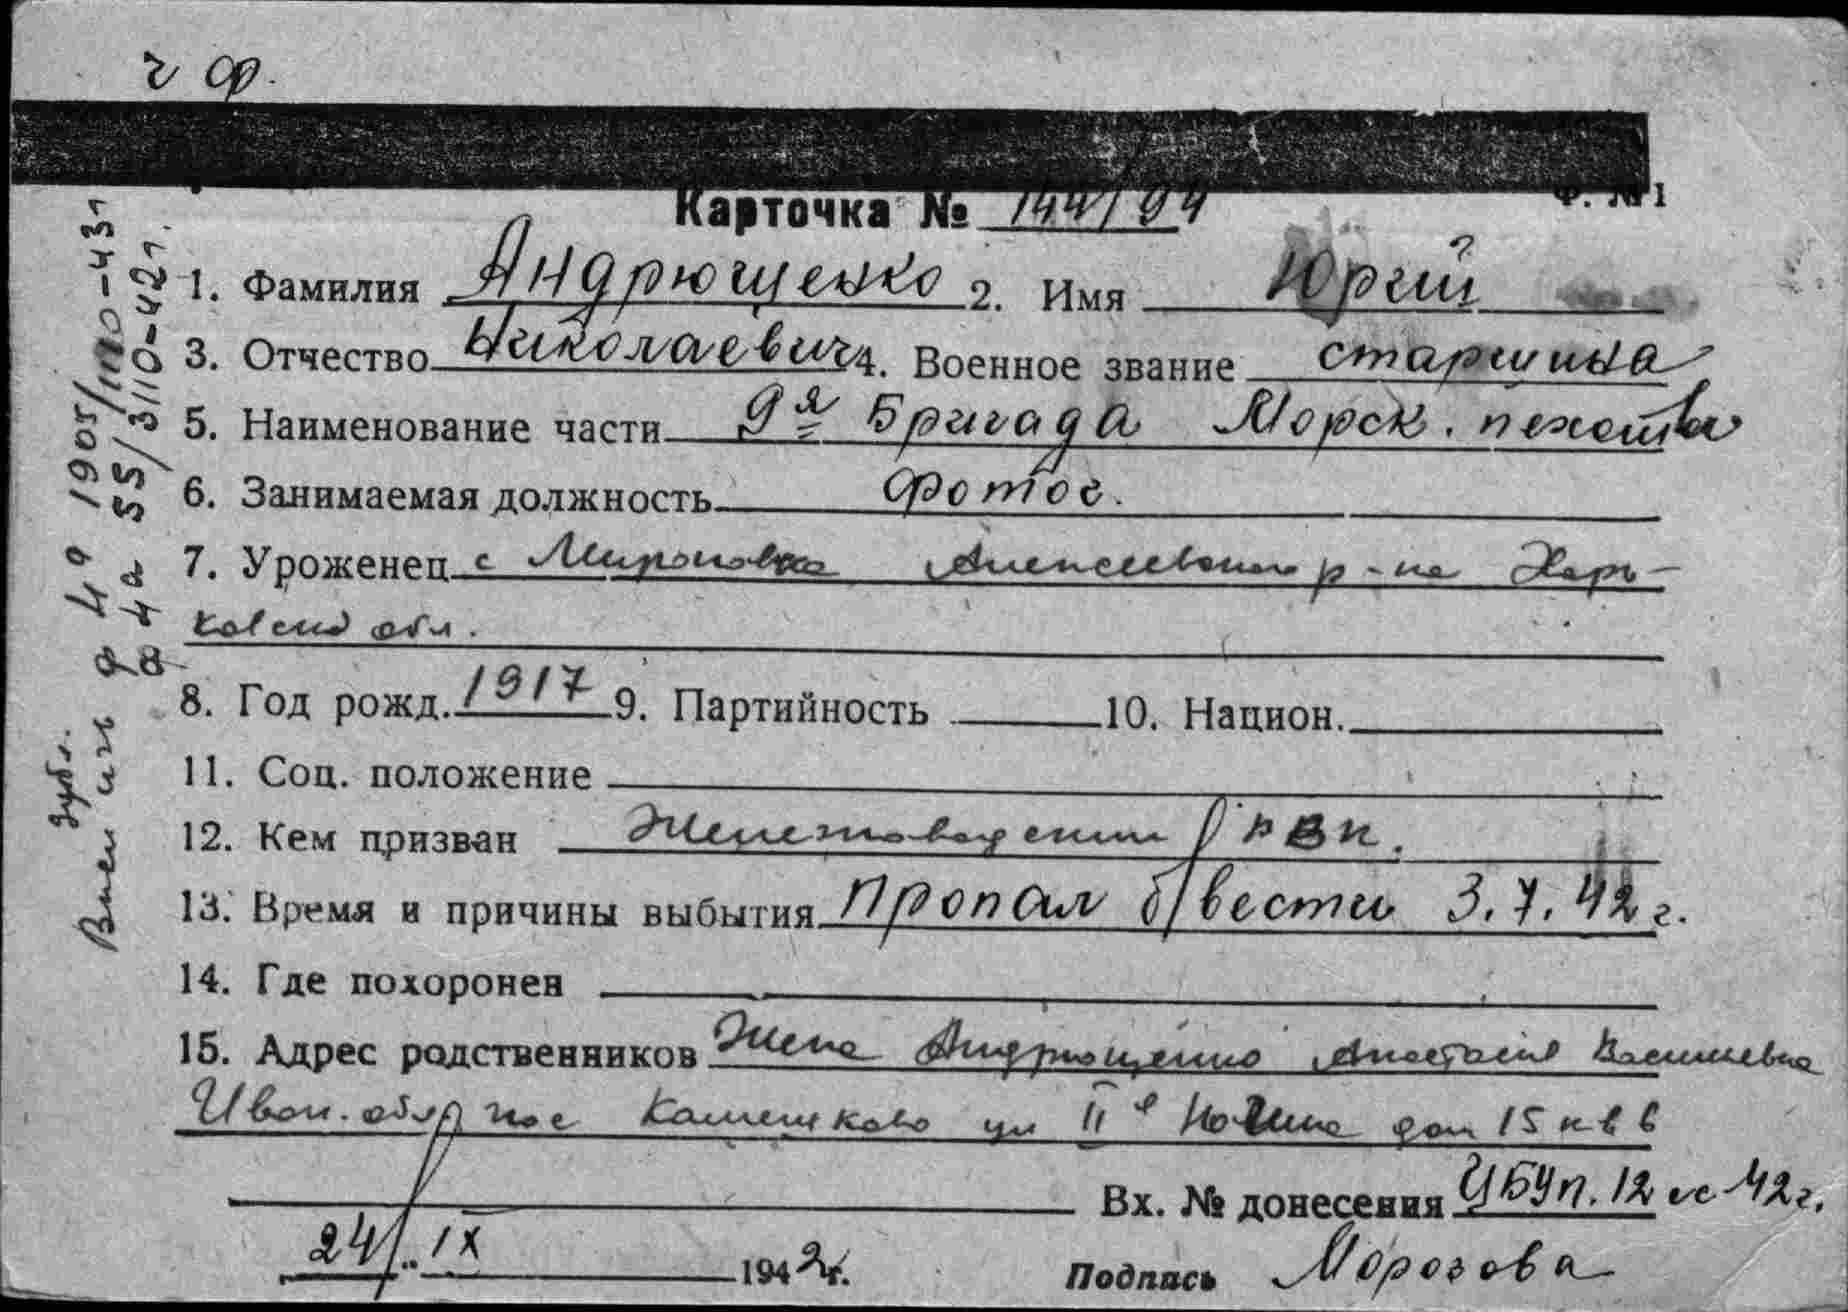 ч ф.
Карточка № 144/94
Ф. № 1
1. Фамилия Андрющенко 2. Имя Юрий ?
3. Отчество Николаевич 4. Военное звание старшина
5. Наименование части 9я Бригада Морск. пехоты
6. Занимаемая должность Фотог.
7. Уроженец с Мироновка Алексеевского р-на Харь-
ковской обл.
8. Год рожд. 1917 9. Партийность 10. Национ.
11. Соц. положение
12. Кем призван РВК.
13. Время и причины выбытия Пропал б/вести 3.7.42 г.
14. Где похоронен
15. Адрес родственников Жена Андрющенко Анастасия Васильевна
Иван. обл. пос Камешково ул II я дом 15 кв 6
Вх. № донесения УБУп. 12 42 г.
24/IX 1942 г. Подпись Морозова